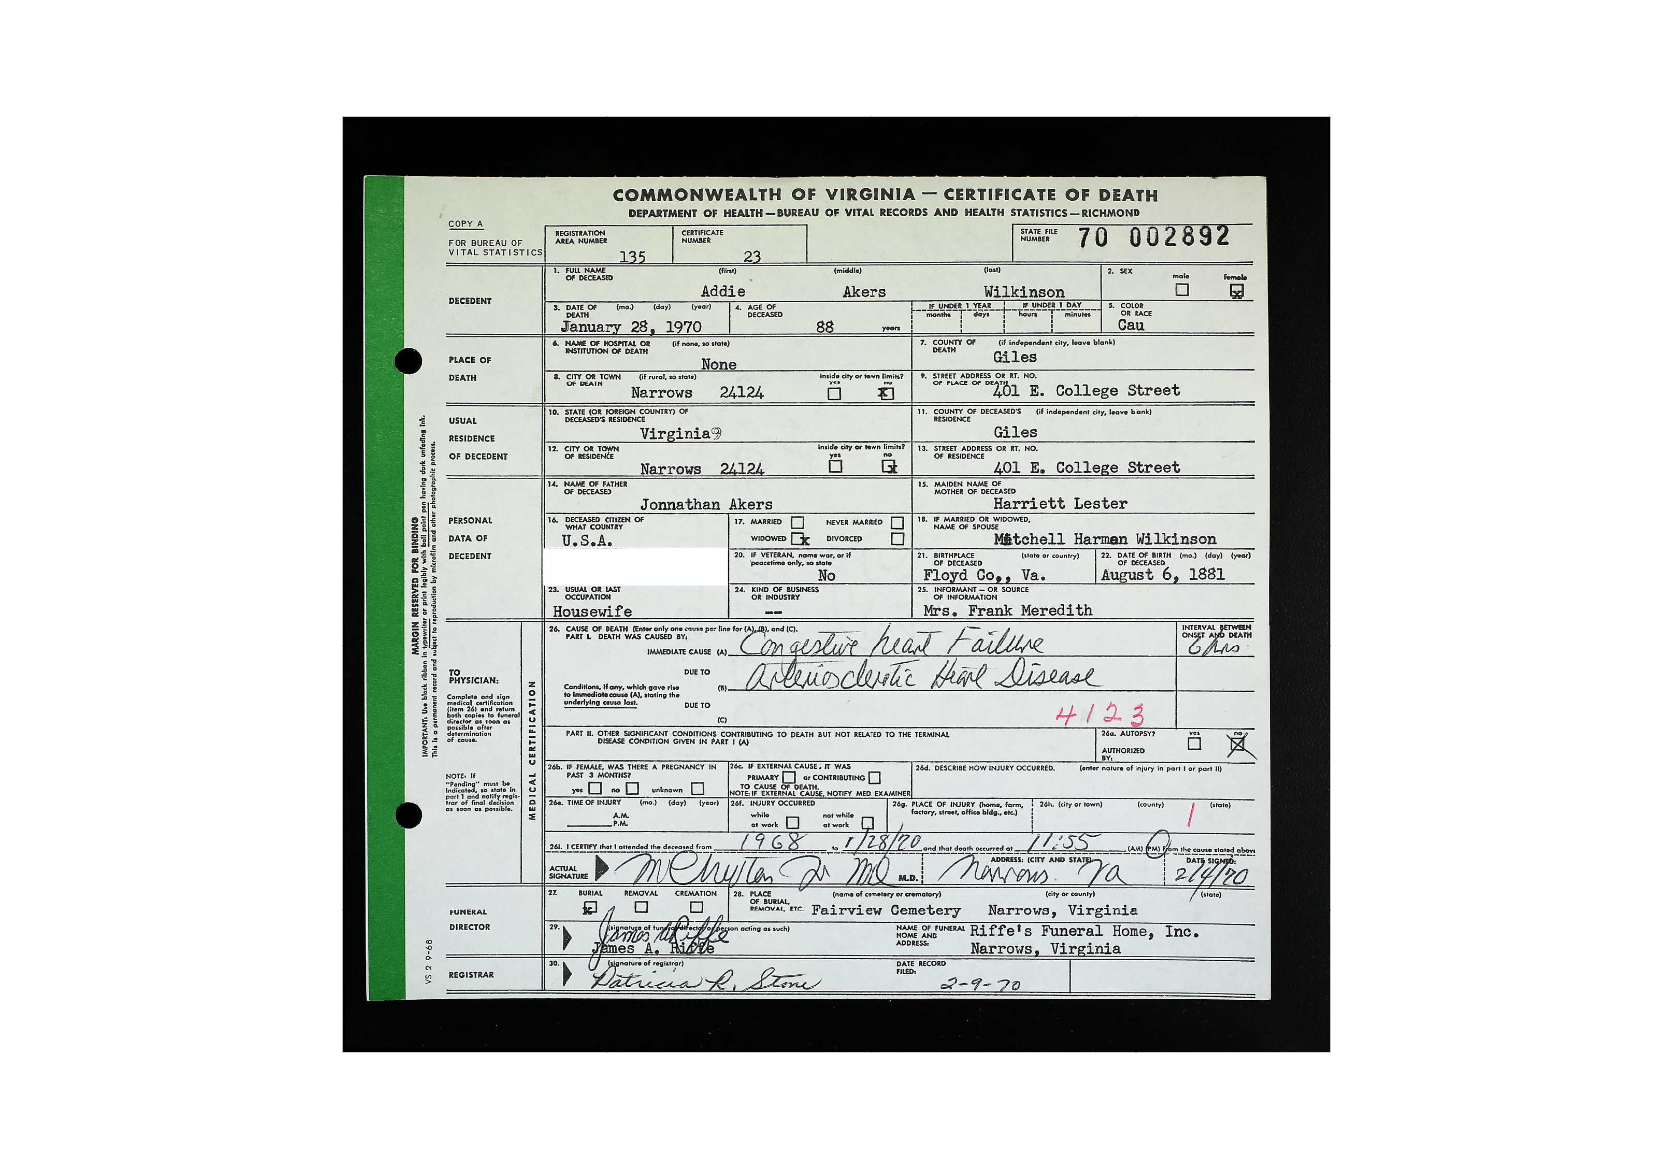 COMMONWEALTH OF VIRGINIA — CERTIFICATE OF DEATH
DEPARTMENT OF HEALTH — BUREAU OF VITAL RECORDS AND HEALTH STATISTICS — RICHMOND
COPY A
FOR BUREAU OF
VITAL STATISTICS
REGISTRATION
AREA NUMBER
135
CERTIFICATE
NUMBER
23
STATE FILE
NUMBER
70 002892
DECEDENT
1. FULL NAME
OF DECEASED
(first) (middle) (last)
Addie Akers Wilkinson
2. SEX
male female
x
3. DATE OF
DEATH
(mo.) (day) (year)
January 28, 1970
4. AGE OF
DECEASED
88 years
IF UNDER 1 YEAR IF UNDER 1 DAY
months days hours minutes
5. COLOR
OR RACE
Cau
PLACE OF
DEATH
6. NAME OF HOSPITAL OR (if none, so state)
INSTITUTION OF DEATH
None
7. COUNTY OF (if independent city, leave blank)
DEATH
Giles
8. CITY OR TOWN (if rural, so state)
OF DEATH
Narrows 24124
inside city or town limits?
yes no
x
9. STREET ADDRESS OR RT. NO.
OF PLACE OF DEATH
401 E. College Street
USUAL
RESIDENCE
OF DECEDENT
10. STATE (OR FOREIGN COUNTRY) OF
DECEASED'S RESIDENCE
Virginia
11. COUNTY OF DECEASED'S (if independent city, leave blank)
RESIDENCE
Giles
12. CITY OR TOWN
OF RESIDENCE
Narrows 24124
inside city or town limits?
yes no
x
13. STREET ADDRESS OR RT. NO.
OF RESIDENCE
401 E. College Street
PERSONAL
DATA OF
DECEDENT
14. NAME OF FATHER
OF DECEASED
Jonnathan Akers
15. MAIDEN NAME OF
MOTHER OF DECEASED
Harriett Lester
16. DECEASED CITIZEN OF
WHAT COUNTRY
U.S.A.
17. MARRIED NEVER MARRIED
WIDOWED x DIVORCED
18. IF MARRIED OR WIDOWED,
NAME OF SPOUSE
Mitchell Harman Wilkinson
20. IF VETERAN, name war, or if
peacetime only, so state
No
21. BIRTHPLACE (state or country)
OF DECEASED
Floyd Co,, Va.
22. DATE OF BIRTH (mo.) (day) (year)
OF DECEASED
August 6, 1881
23. USUAL OR LAST
OCCUPATION
Housewife
24. KIND OF BUSINESS
OR INDUSTRY
--
25. INFORMANT — OR SOURCE
OF INFORMATION
Mrs. Frank Meredith
MARGIN RESERVED FOR BINDING
IMPORTANT: Use black ribbon in typewriter or print legibly with ball point pen having dark unfading ink.
This is a permanent record and subject to reproduction by microfilm and other photographic process.
TO
PHYSICIAN:
Complete and sign
medical certification
(item 26) and return
both copies to funeral
director as soon as
possible after
determination
of cause.
NOTE: If
"Pending" must be
indicated, so state in
part I and notify regis-
trar of final decision
as soon as possible.
MEDICAL CERTIFICATION
26. CAUSE OF DEATH (Enter only one cause per line for (A), (B), and (C).
PART I. DEATH WAS CAUSED BY:
INTERVAL BETWEEN
ONSET AND DEATH
IMMEDIATE CAUSE (A) Congestive heart Failure 6 hrs
DUE TO
Conditions, if any, which gave rise
to immediate cause (A), stating the
underlying cause last.
(B) Arteriosclerotic Heart Disease
DUE TO
(C)
4123
PART II. OTHER SIGNIFICANT CONDITIONS CONTRIBUTING TO DEATH BUT NOT RELATED TO THE TERMINAL
DISEASE CONDITION GIVEN IN PART I (A)
26a. AUTOPSY? yes no
AUTHORIZED
BY:
26b. IF FEMALE, WAS THERE A PREGNANCY IN
PAST 3 MONTHS?
yes no unknown
26c. IF EXTERNAL CAUSE, IT WAS
PRIMARY or CONTRIBUTING
TO CAUSE OF DEATH.
NOTE: IF EXTERNAL CAUSE, NOTIFY MED. EXAMINER
26d. DESCRIBE HOW INJURY OCCURRED. (enter nature of injury in part I or part II)
26e. TIME OF INJURY (mo.) (day) (year)
A.M.
P.M.
26f. INJURY OCCURRED
while not while
at work at work
26g. PLACE OF INJURY (home, farm,
factory, street, office bldg., etc.)
26h. (city or town) (county) (state)
1
26i. I CERTIFY that I attended the deceased from 1968 to 1/28/70 and that death occurred at 11:55 (A.M) (PM) from the cause stated above
ACTUAL
SIGNATURE
M.D.
ADDRESS: (CITY AND STATE)
Narrows. Va
DATE SIGNED:
2/4/70
FUNERAL
DIRECTOR
27. BURIAL REMOVAL CREMATION
x
28. PLACE (name of cemetery or crematory) (city or county) (state)
OF BURIAL,
REMOVAL, ETC. Fairview Cemetery Narrows, Virginia
29. (signature of funeral director or person acting as such)
James A. Riffe
James A. Riffe
NAME OF FUNERAL
HOME AND
ADDRESS:
Riffe's Funeral Home, Inc.
Narrows, Virginia
REGISTRAR
30. (signature of registrar)
Patricia R. Stone
DATE RECORD
FILED:
2-9-70
VS 2 9-68